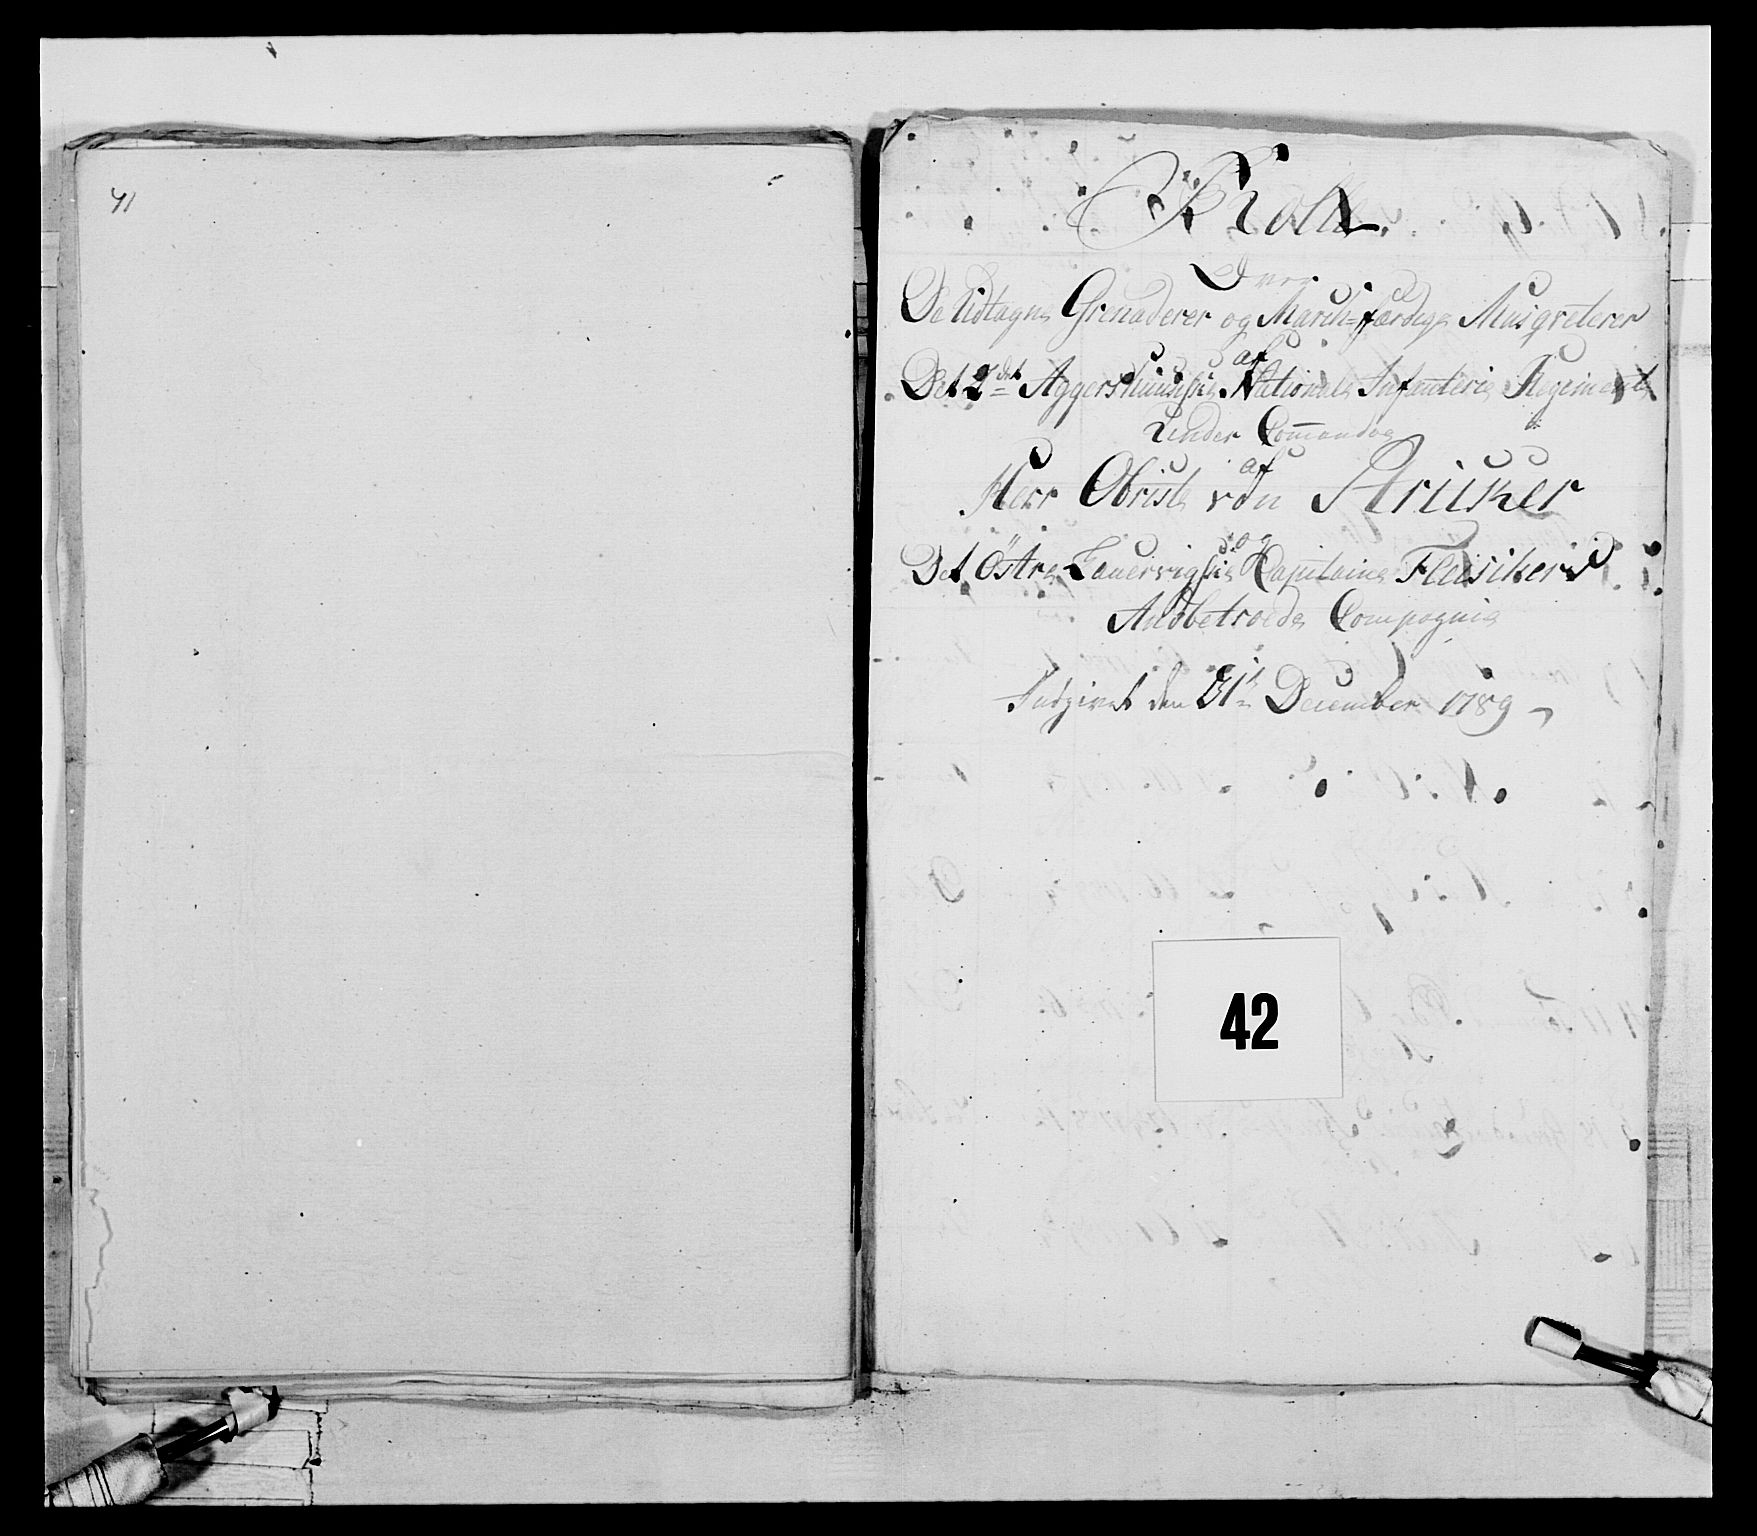 41
Rolle
Over
De Udtagne Grenaderer og March-færdige Musqveterer
af
Det 2det Aggershuusiske Nationale Infanterie Regiment
Under Commando
af
Herr Obriste von Striiker
og
Det Östre Laurvigske Capitaine
Anbetroede Compagnie
Indgivet den 31te December 1789
42